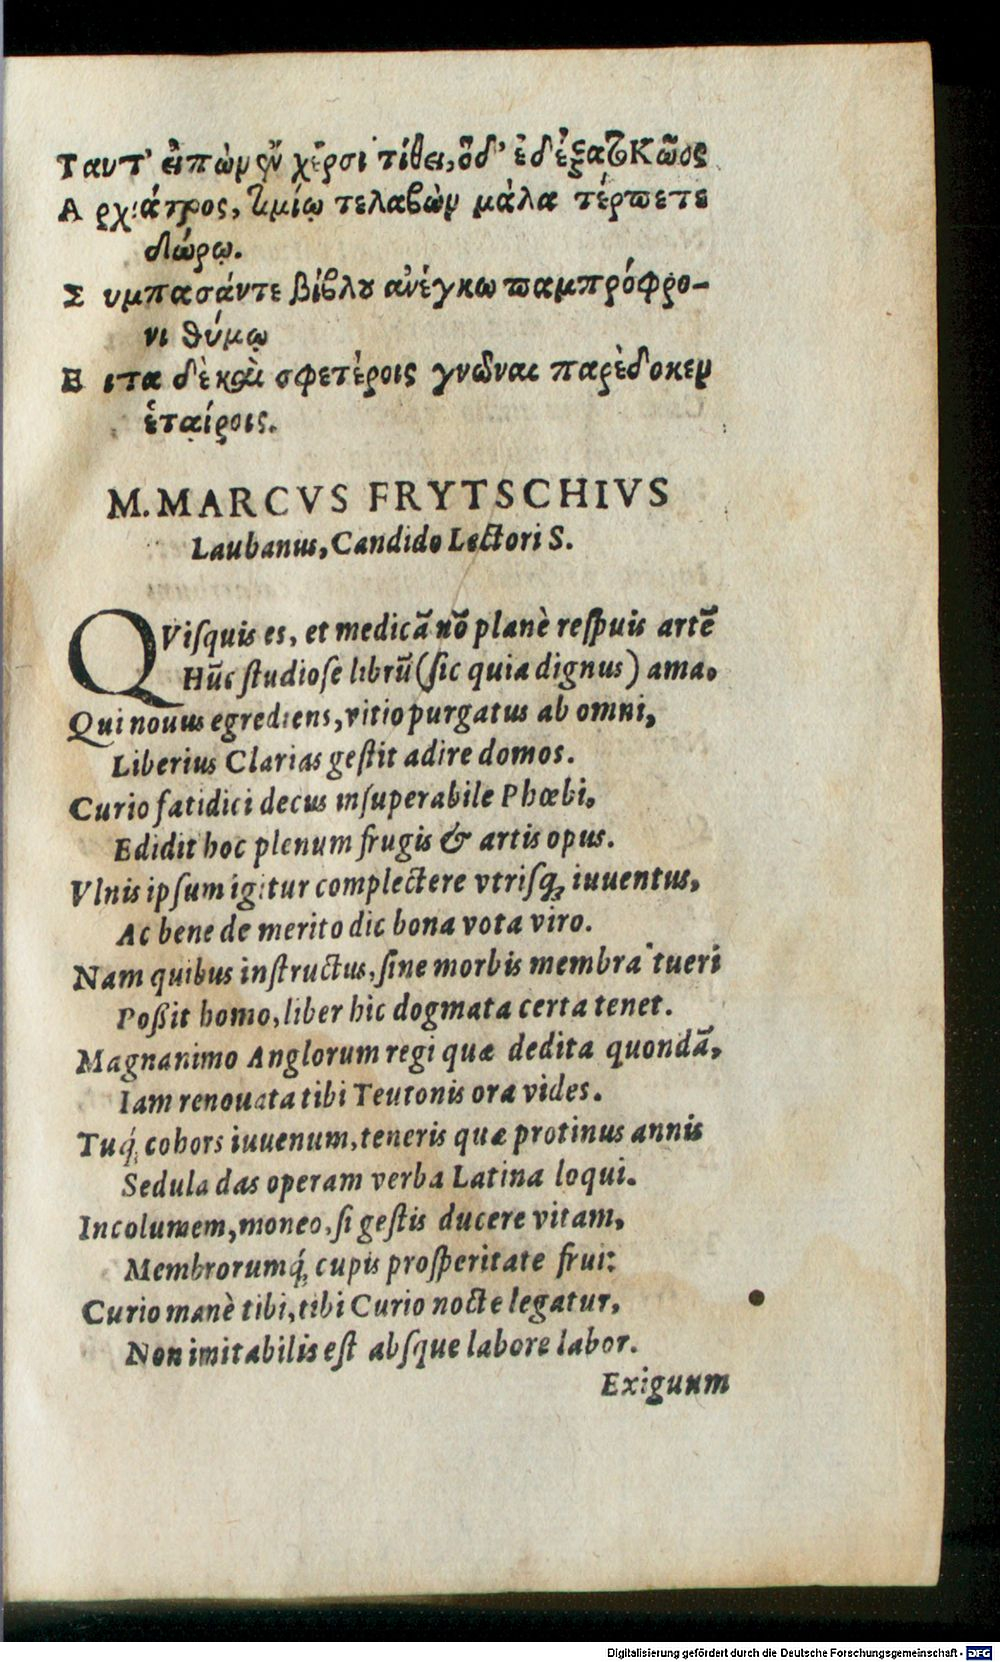 Ταυτ' εἰπὼν ἐν χέρσι τίθει, ὅδ' ἐδέξατο Κῶος
Αρχιάτρος, τελαβὼν μάλα τέρπετε
δώρῳ.
Συμπασάντε βίβλου ἀνέγκω παμπρόφρο-
νι θύμῳ
Ειτα δὲ καὶ σφετέροις γνῶναι παρέδοκεν
ἑταίροις.
M. MARCVS FRYTSCHIVS
Laubanus, Candido Lectori S.
QVisquis es, et medicã nõ planè respuis artẽ
Hũc studiose librũ (sic quia dignus) ama.
Qui nouus egrediens, vitio purgatus ab omni,
Liberius Clarias gestit adire domos.
Curio fatidici decus insuperabile Phœbi,
Edidit hoc plenum frugis & artis opus.
Vlnis ipsum igitur complectere vtrisq́; iuuentus,
Ac bene de merito dic bona vota viro.
Nam quibus instructus, sine morbis membra tueri
Poßit homo, liber hic dogmata certa tenet.
Magnanimo Anglorum regi quæ dedita quondã,
Iam renouata tibi Teutonis ora vides.
Tuq́; cohors iuuenum, teneris quæ protinus annis
Sedula das operam verba Latina loqui.
Incolumem, moneo, si gestis ducere vitam,
Membrorumq́; cupis prosperitate frui:
Curio manè tibi, tibi Curio nocte legatur,
Non imitabilis est absque labore labor.
Exiguum
Digitalisierung gefördert durch die Deutsche Forschungsgemeinschaft - DFG